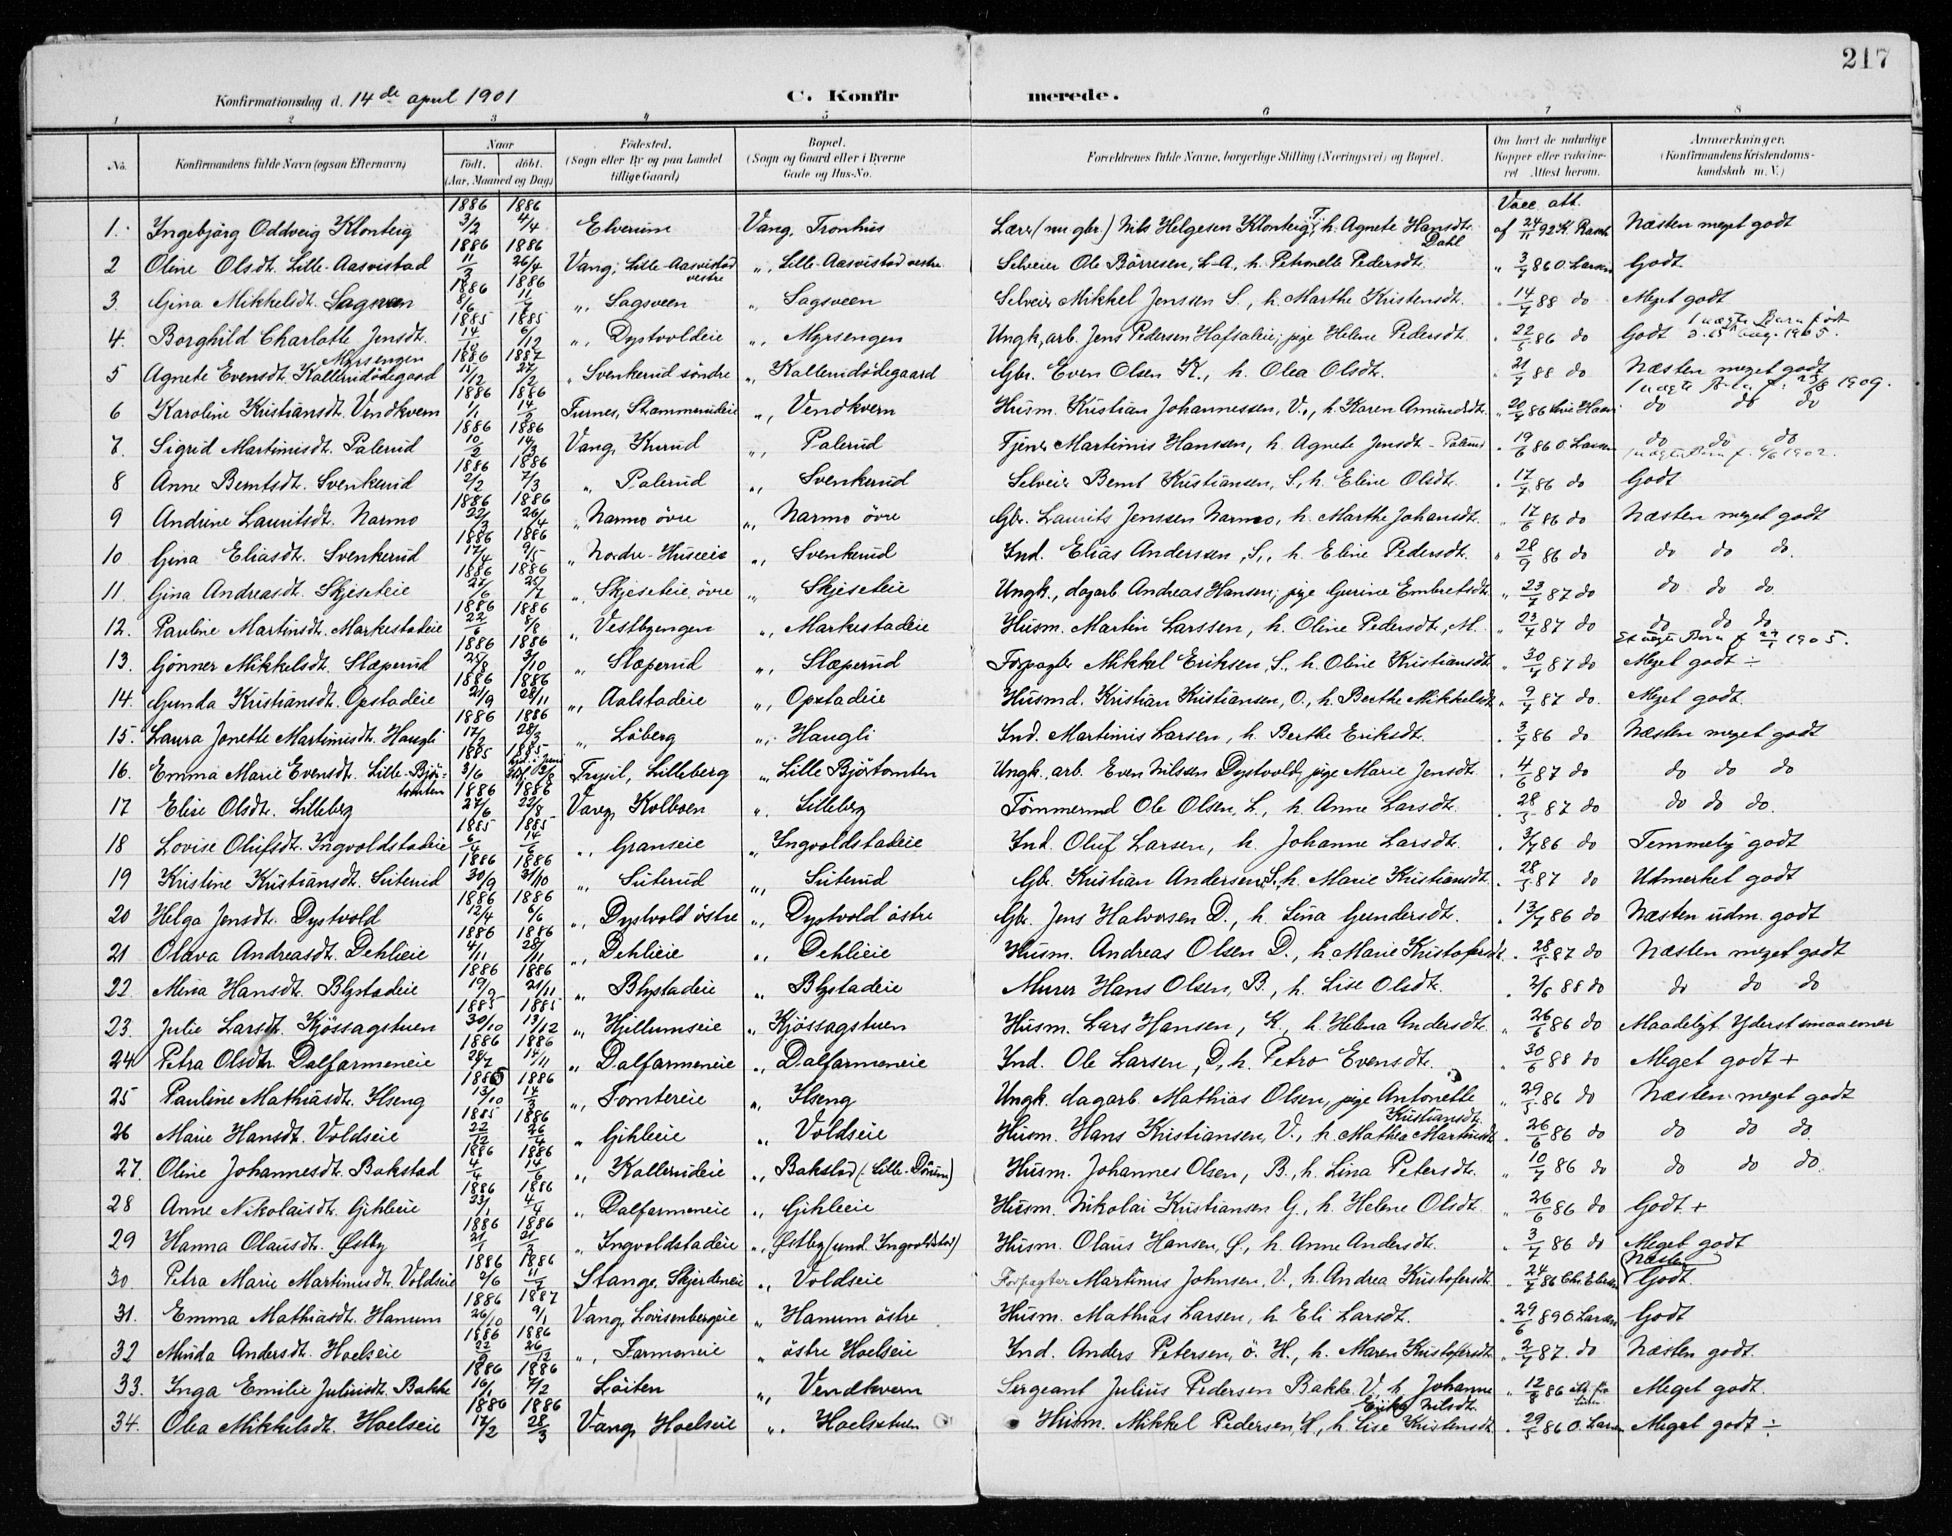 217
Konfirmationsdag d. 14de april 1901 C. Konfirmerede.
1 2 3 4 5 6 7 8
No. Konfirmandens fulde Navn (ogsaa Efternavn) Naar født. døbt. (Aar, Maaned og Dag) Fødested. (Sogn eller By og paa Landet tillige Gaard) Bopæl. (Sogn og Gaard eller i Byerne Gade og Hus-No. Forældrenes fulde Navne, borgerlige Stilling (Næringsvei) og Bopæl. Om havt de naturlige Kopper eller vakcineret. Attest herom. Anmærkninger. (Konfirmandens Kristendomskundskab m. V.)
1. Ingebjørg Oddveig Klonteig 1886 3/2 1886 4/4 Elverum Vang, Tronhus Lærer (nu gbr.) Nils Helgesen Klonteig, T., h. Agnete Hansdt. Dahl Vacc. att. af 24/11 92 K. Næsten meget godt
2 Oline Olsdt. Lille-Aasvistad 1886 11/3 1886 26/4 Vang, Lille-Aasvistad vestre ", Lille-Aasvistad vestre Selveier Ole Børresen, L-A, h. Petronelle Pedersdt. " 3/7 86 O. Larsen Godt
3 Gina Mikkelsdt. Sagsveen 1886 8/6 1886 11/7 ", Sagsveen " Sagsveen Selveier Mikkel Jenssen S., h. Marthe Kristensdt. " 14/7 88 do Meget godt
4. Borghild Charlotte Jensdt. Myrsengen 1885 14/10 1885 6/12 ", Dystvoldeie ", Myrsengen Ungk. arb. Jens Pedersen Hafsaleie; pige Helene Pedersdt. " 22/5 86 do Godt 1 uægte Barn født aug. 1905.
5 Agnete Evensdt. Kallerudødegaard 1886 15/12 1887 27/2 " Svenkerud søndre ", Kallerudødegaard Gbr. Even Olsen K., h. Olea Olsdt. " 21/7 88 do Næsten meget godt 1 uægte Barn f. 23/8 1909.
6 Karoline Kristiansdt. Vendkvern 1886 1/1 1886 14/2 Furnes, Stammerudeie ", Vendkvern Husm. Kristian Johannessen, V., h. Karen Amundsdt. " 20/7 86 do do do
7. Sigrid Martinusdt. Palerud 1886 10/2 1886 14/3 Vang, Kurud ", Palerud Tjener Martinus Hanssen, h. Agnete Jensdt. - Palerud " 19/6 86 O. Larsen do do do 1 uægte Barn f. 4/6 1902.
8 Anne Berntsdt. Svenkerud 1886 2/2 1886 7/3 " Palerud ", Svenkerud Selveier Bernt Kristiansen, S., h. Eline Olsdt. " 17/7 86 do Godt
9 Andrine Lauritsdt. Narmo 1886 22/3 1886 26/4 " Narmo øvre ", Narmo øvre Gbr. Laurits Jenssen Narmo, h. Marthe Johansdt. " 17/6 86 do Næsten meget godt
10 Gina Eliasdt. Svenkerud 1886 17/4 1886 9/5 " Nordre-Huseeie ", Svenkerud Ind. Elias Anderssen, S., h. Eline Pedersdt. " 28/9 86 do do do do.
11. Gina Andreasdt. Skjeseteie 1886 27/6 1886 25/7 ", Skjeseteie øvre ", Skjeseteie Ungk., dagarb. Andreas Hansen; pige Gurine Embretsdt. " 23/7 87 do do do do.
12. Pauline Martinsdt. Markestadeie 1886 22/6 1886 8/8 ", Vestbyengen ", Markestadeie Husm. Martin Larssen, h. Oline Pedersdt., M. " 23/7 87 do do do do Et uægte Barn f. 27/7 1905.
13. Gønner Mikkelsdt. Slæperud 1886 25/8 1886 3/10 ", Slæperud ", Slæperud Forpagter Mikkel Eriksen, S., h. Oline Kristiansdt. " 30/7 87 do Meget godt ÷
14. Gunda Kristiansdt. Opstadeie 1886 21/9 1886 28/11 ", Aalstadeie ", Opstadeie Husmd. Kristian Kristiansen, O., h. Berthe Mikkelsdt. " 9/7 87 do. Meget godt.
15. Laura Jonette Martinusdt. Haugli 1886 17/2 1886 28/3 ", Løberg ", Haugli Ind. Martinus Larsen, h. Berthe Eriksdt. " 3/7 86 do Næsten meget godt
16. Emma Marie Evensdt. Lille-Bjørtomten 1885 3/6 1885 Trysil, Lilleberg " Lille Bjørtomten Ungk. arb. Even Nilssen Dystvold, pige Marie Jensdt. " 4/6 87 do do do do
17 Elise Olsdt. Lilleberg 1886 27/6 1886 22/8 Vang, Kolboen ", Lilleberg Tømmermd Ole Olsen, L., h. Anne Larsdt. " 28/5 87 do do do do.
18 Lovise Olufsdt. Ingvoldstadeie 1885 6/4 1885 14/6 ", Granseie " Ingvoldstadeie Ind. Oluf Larsen, h. Johanne Larsdt. " 3/7 86 do Temmelig godt
19 Kristine Kristiansdt. Suterud 1886 30/9 1886 31/10 ", Suterud ", Suterud Gbr. Kristian Andersen, S., h. Marie Kristiansdt. " 28/5 87 do Udmerket godt
20 Helga Jensdt. Dystvold 1886 12/4 1886 6/6 ", Dystvold østre ", Dystvold østre Gbr. Jens Halvorsen D., h. Lina Gundersdt. " 13/7 86 do Næsten udm. godt
21 Olava Andreasdt. Dehlieie 1886 4/11 1886 28/11 ", Dehlieie ", Dehlieie Husm. Andreas Olsen D., h. Marie Kristofersdt. " 28/5 87 do Næsten meget godt
22. Mina Hansdt. Blystadeie 1886 19/9 1886 21/11 " Blystadeie ", Blystadeie Murer Hans Olsen, B., h. Lise Olsdt. " 2/6 88 do do do do
23. Julie Larsdt. Kjøssagstuen 1885 30/10 1885 13/12 ", Hjellumseie ", Kjøssagstuen Husm. Lars Hansen, K., h. Helena Andersdt. " 26/6 86 do Maadeligt. Yderst smaa evner
24. Petra Olsdtr. Dalfarmeneie 1886 28/7 1886 14/11 " Dalfarmeneie ", Dalfarmeneie Ind. Ole Larsen, D., h. Petra Evensdt. " 30/6 88 do Meget godt +
25 Pauline Mathiasdt. Ilseng 1885 13/10 1886 14/3 ", Tomtereie ", Ilseng Ungk. dagarb. Mathias Olsen, pige Antonette Kristiansdt. " 29/5 86 do Næsten meget godt
26 Marie Hansdt. Voldseie 1885 22/12 1886 26/4 " Gihleeie " Voldseie Husm. Hans Kristiansen, V., h. Mathea Martinsdt. " 26/6 86 do do do do
27. Oline Johannesdt. Bakstad 1886 4/4 1886 14/6 ", Kallerudeie ", Bakstad (Lille-Dørum) Husm. Johannes Olsen, B., h. Lina Petersdt. " 10/7 86 do do do do.
28 Anne Nikolaisdt. Gihleeie 1886 23/1 1886 4/4 " Dalfarmeneie ", Gihleeie Husm. Nikolai Kristiansen G., h. Helene Olsdt. " 26/6 86 do Godt +
29 Hanna Olausdt. Østby 1886 21/1 1886 21/3 " Ingvoldstadeie ", Østby (und. Ingvoldstad) Husm. Olaus Hansen, Ø., h. Anne Andersdt. " 3/7 86 do Meget godt
30. Petra Marie Martinusdt. Voldseie 1886 2/6 1886 11/7 Stange, Skjerdeneie ", Voldseie Forpagter Martinus Johnsen, V., h. Andrea Kristofersdt. " 24/7 86 Næsten Godt.
31. Emma Mathiasdt. Hanum 1886 26/10 1887 9/1 Vang, Lovisenbergeie " Hanum østre Husm. Mathias Larsen, h. Eli Larsdt. " 29/6 89 O. Larsen Godt
32 Minda Andersdt. Hoelseie 1886 22/9 1886 26/12 ", Farmeneie " østre Hoelseie Ind. Anders Petersen, ø. H., h. Maren Kristofersdt. " 2/7 87. do Næsten godt.
33. Inga Emilie Juliusdt. Bakke 1886 16/1 1886 7/2 Løiten ", Vendkvern Sergeant Julius Pedersen Bakke V., h. Johanne Erika Nilsdt. " 12/8 86 Meget godt.
34. Olea Mikkelsdt. Hoelseie 1886 17/2 1886 28/3 Vang, Hoelseie ", Hoelsetuen Husm. Mikkel Pedersen, H., h. Lise Kristensdt. " 29/5 86 O. Larsen Meget godt ÷